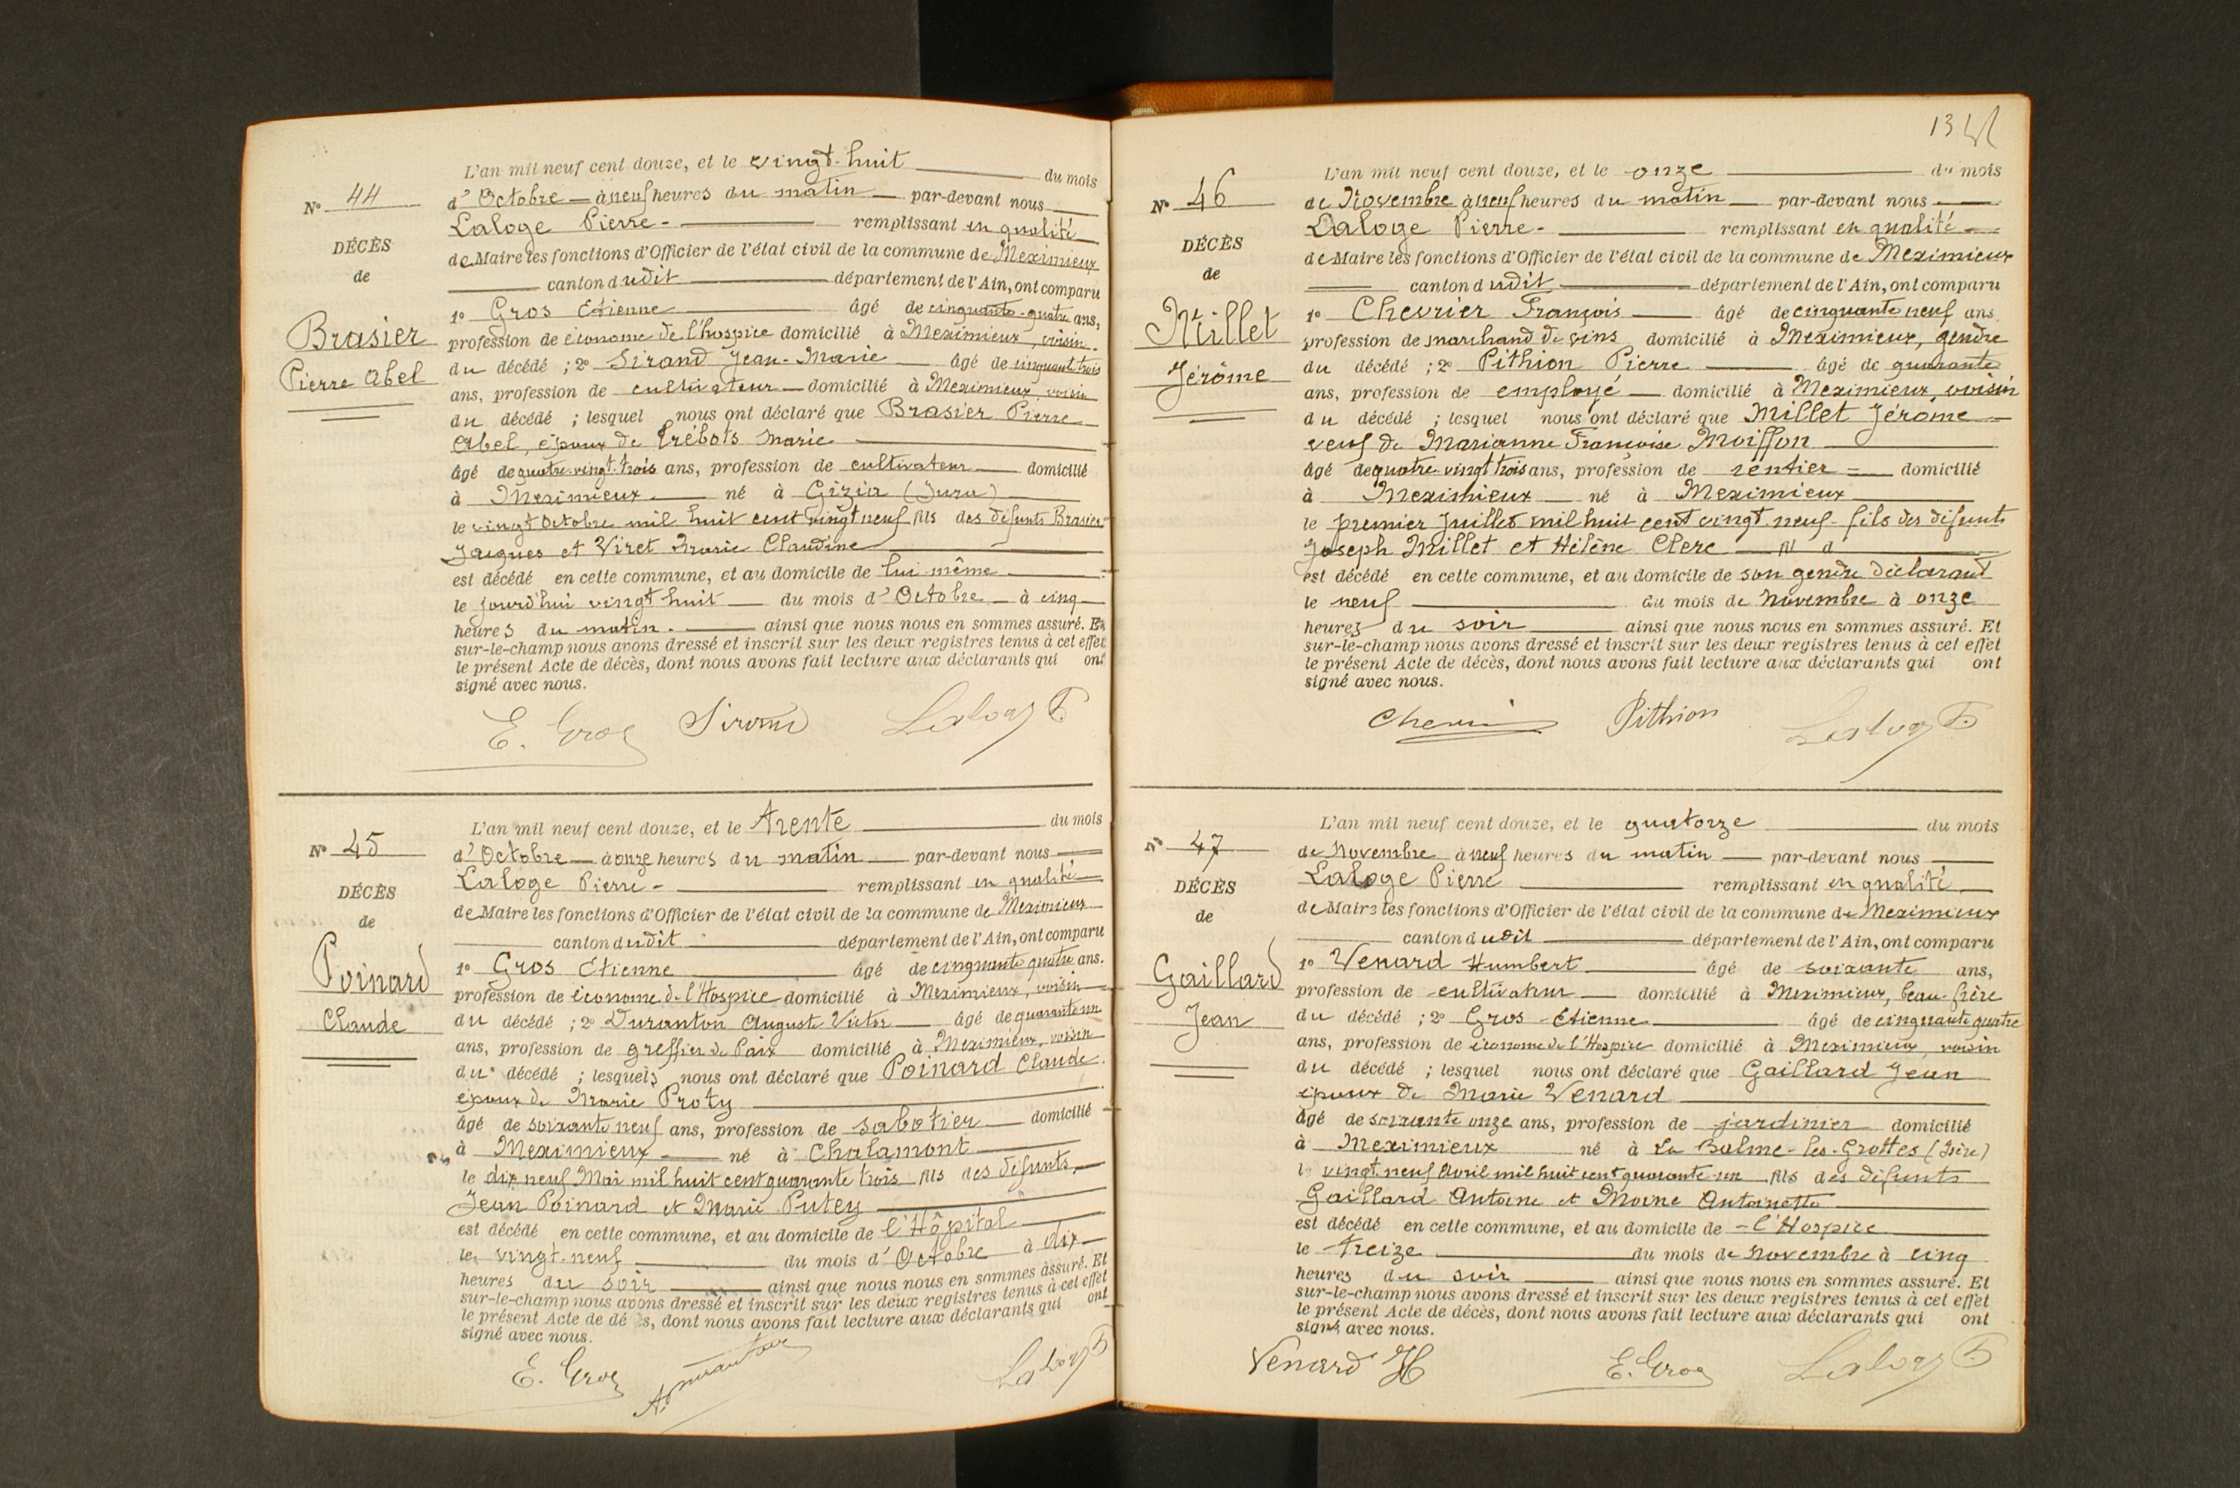 L'an mil neuf cent douze, et le vingt-huit du mois
N° 44
d'Octobre à neuf heures du matin par-devant nous
Laloge Pierre - remplissant en qualité
DÉCÈS
de Maire les fonctions d'Officier de l'état civil de la commune de Meximieux
de
canton dudit département de l'Ain, ont comparu
1° Gros Etienne âgé de cinquante-quatre ans,
Brasier
profession de économe de l'hospice domicilié à Meximieux, voisin
du décédé ; 2° Sirand Jean-Marie âgé de cinquante trois
Pierre Abel
ans, profession de cultivateur domicilié à Meximieux, voisin
du décédé ; lesquel nous ont déclaré que Brasier Pierre
Abel, époux de Trébots Marie
âgé de quatre-vingt-trois ans, profession de cultivateur domicilié
à Meximieux né à Gizia (Jura)
le vingt Octobre mil huit cent vingt neuf fils des défunts Brasier
Jacques et Viret Marie Claudine
est décédé en cette commune, et au domicile de lui-même
le jourd'hui vingt huit du mois d'Octobre à cinq
heures du matin. ainsi que nous nous en sommes assuré. Et
sur-le-champ nous avons dressé et inscrit sur les deux registres tenus à cet effet
le présent Acte de décès, dont nous avons fait lecture aux déclarants qui ont
signé avec nous.
E. Gros Sirand Laloge P.
L'an mil neuf cent douze, et le trente du mois
N° 45
d'Octobre à onze heures du matin par-devant nous
Laloge Pierre - remplissant en qualité
DÉCÈS
de Maire les fonctions d'Officier de l'état civil de la commune de Meximieux
de
canton dudit département de l'Ain, ont comparu
1° Gros Etienne âgé de cinquante quatre ans.
Poinard
profession de économe de l'Hospice domicilié à Meximieux, voisin
Claude
du décédé ; 2° Duranton August Victor âgé de quarante un
ans, profession de greffier de Paix domicilié à Meximieux, voisin
du décédé ; lesquels nous ont déclaré que Poinard Claude
époux de Marie Proty
âgé de soixante neuf ans, profession de sabotier domicilié
à Meximieux né à Chalamont
le dix neuf Mai mil huit cent quarante trois fils des défunts
Jean Poinard et Marie Putey
est décédé en cette commune, et au domicile de l'Hôpital
le vingt-neuf du mois d'Octobre à dix
heures du soir ainsi que nous nous en sommes assuré. Et
sur-le-champ nous avons dressé et inscrit sur les deux registres tenus à cet effet
le présent Acte de décès, dont nous avons fait lecture aux déclarants qui ont
signé avec nous.
E. Gros Laloge P
134
L'an mil neuf cent douze, et le onze du mois
N° 46
de Novembre à neuf heures du matin par-devant nous
Laloge Pierre - remplissant en qualité
DÉCÈS
de Maire les fonctions d'Officier de l'état civil de la commune de Meximieux
de
canton dudit département de l'Ain, ont comparu
1° Chevrier François âgé de cinquante neuf ans
Millet
profession de marchand de vins domicilié à Meximieux, gendre
du décédé ; 2° Pithion Pierre âgé de quarante
Jérôme
ans, profession de employé domicilié à Meximieux, voisin
du décédé ; lesquel nous ont déclaré que Millet Jérome
veuf de Marianne Françoise Moiffon
âgé de quatre-vingt trois ans, profession de rentier domicilié
à Meximieux né à Meximieux
le premier Juillet mil huit cent vingt-neuf fils des défunts
Joseph Millet et Hélène Clerc fil d
est décédé en cette commune, et au domicile de son gendre déclarant
le neuf du mois de Novembre à onze
heures du soir ainsi que nous nous en sommes assuré. Et
sur-le-champ nous avons dressé et inscrit sur les deux registres tenus à cet effet
le présent Acte de décès, dont nous avons fait lecture aux déclarants qui ont
signé avec nous.
Chevrier Pithion Laloge P.
L'an mil neuf cent douze, et le quatorze du mois
N° 47
de Novembre à neuf heures du matin par-devant nous
Laloge Pierre remplissant en qualité
DÉCÈS
de Maire les fonctions d'Officier de l'état civil de la commune de Meximieux
de
canton dudit département de l'Ain, ont comparu
1° Venard Humbert âgé de soixante ans,
Gaillard
profession de cultivateur domicilié à Meximieux, beau-frère
Jean
du décédé ; 2° Gros Etienne âgé de cinquante quatre
ans, profession de économe de l'Hospice domicilié à Meximieux, voisin
du décédé ; lesquel nous ont déclaré que Gaillard Jean
époux de Marie Venard
âgé de soixante onze ans, profession de jardinier domicilié
à Meximieux né à La Balme-les-Grottes (Isère)
le vingt-neuf Avril mil huit cent quarante-un fils des défunts
Gaillard Antoine et Moine Antoinette
est décédé en cette commune, et au domicile de l'Hospice
le treize du mois de Novembre à cinq
heures du soir ainsi que nous nous en sommes assuré. Et
sur-le-champ nous avons dressé et inscrit sur les deux registres tenus à cet effet
le présent Acte de décès, dont nous avons fait lecture aux déclarants qui ont
signé avec nous.
Venard H E. Gros Laloge P